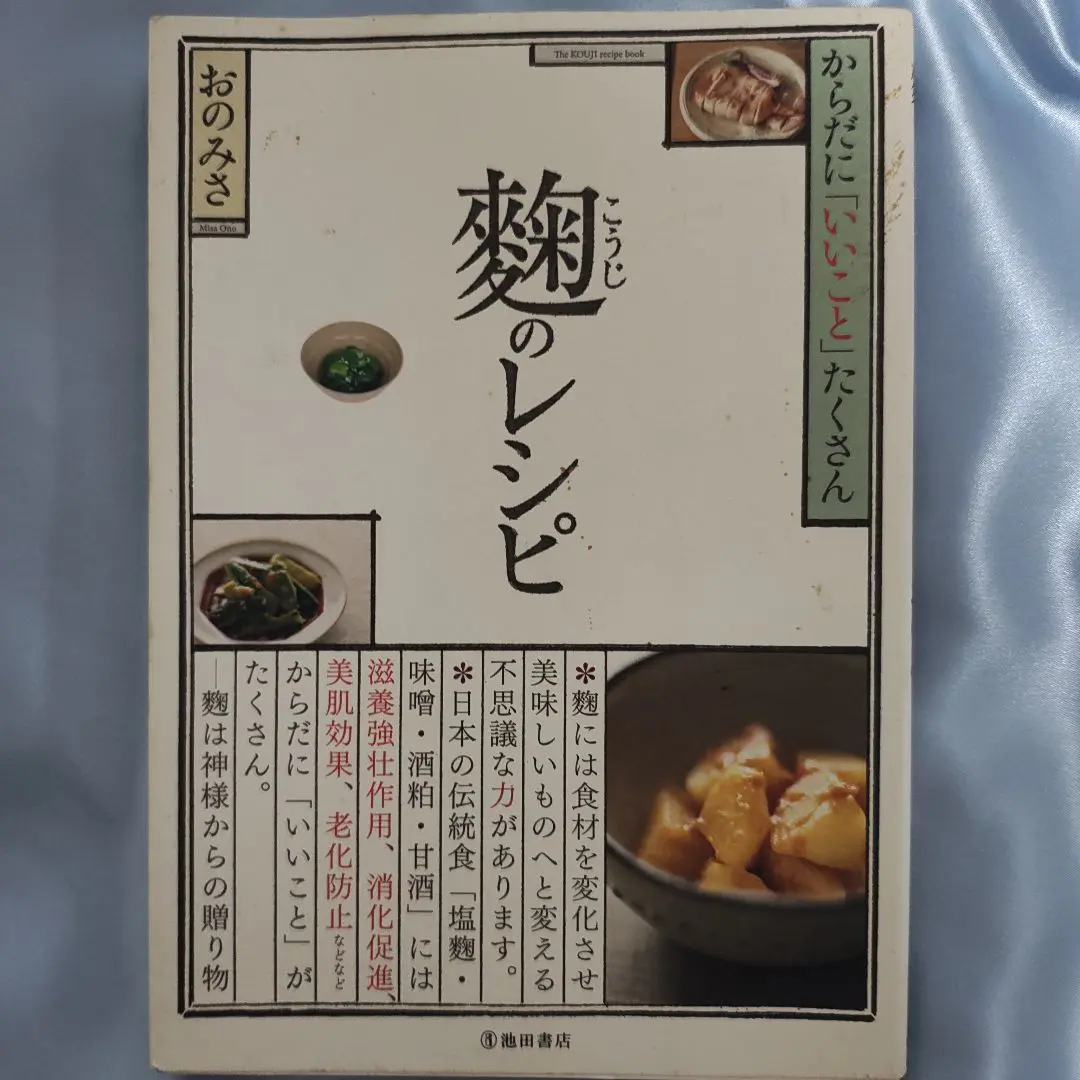 The KOUJI recipe book
からだに「いいこと」たくさん
麴のレシピ
こうじ
おのみさ
Misa Ono
＊麴には食材を変化させ
美味しいものへと変える
不思議な力があります。
＊日本の伝統食「塩麴・
味噌・酒粕・甘酒」には
滋養強壮作用、消化促進、
美肌効果、老化防止などなど
からだに「いいこと」が
たくさん。
―麴は神様からの贈り物
池田書店